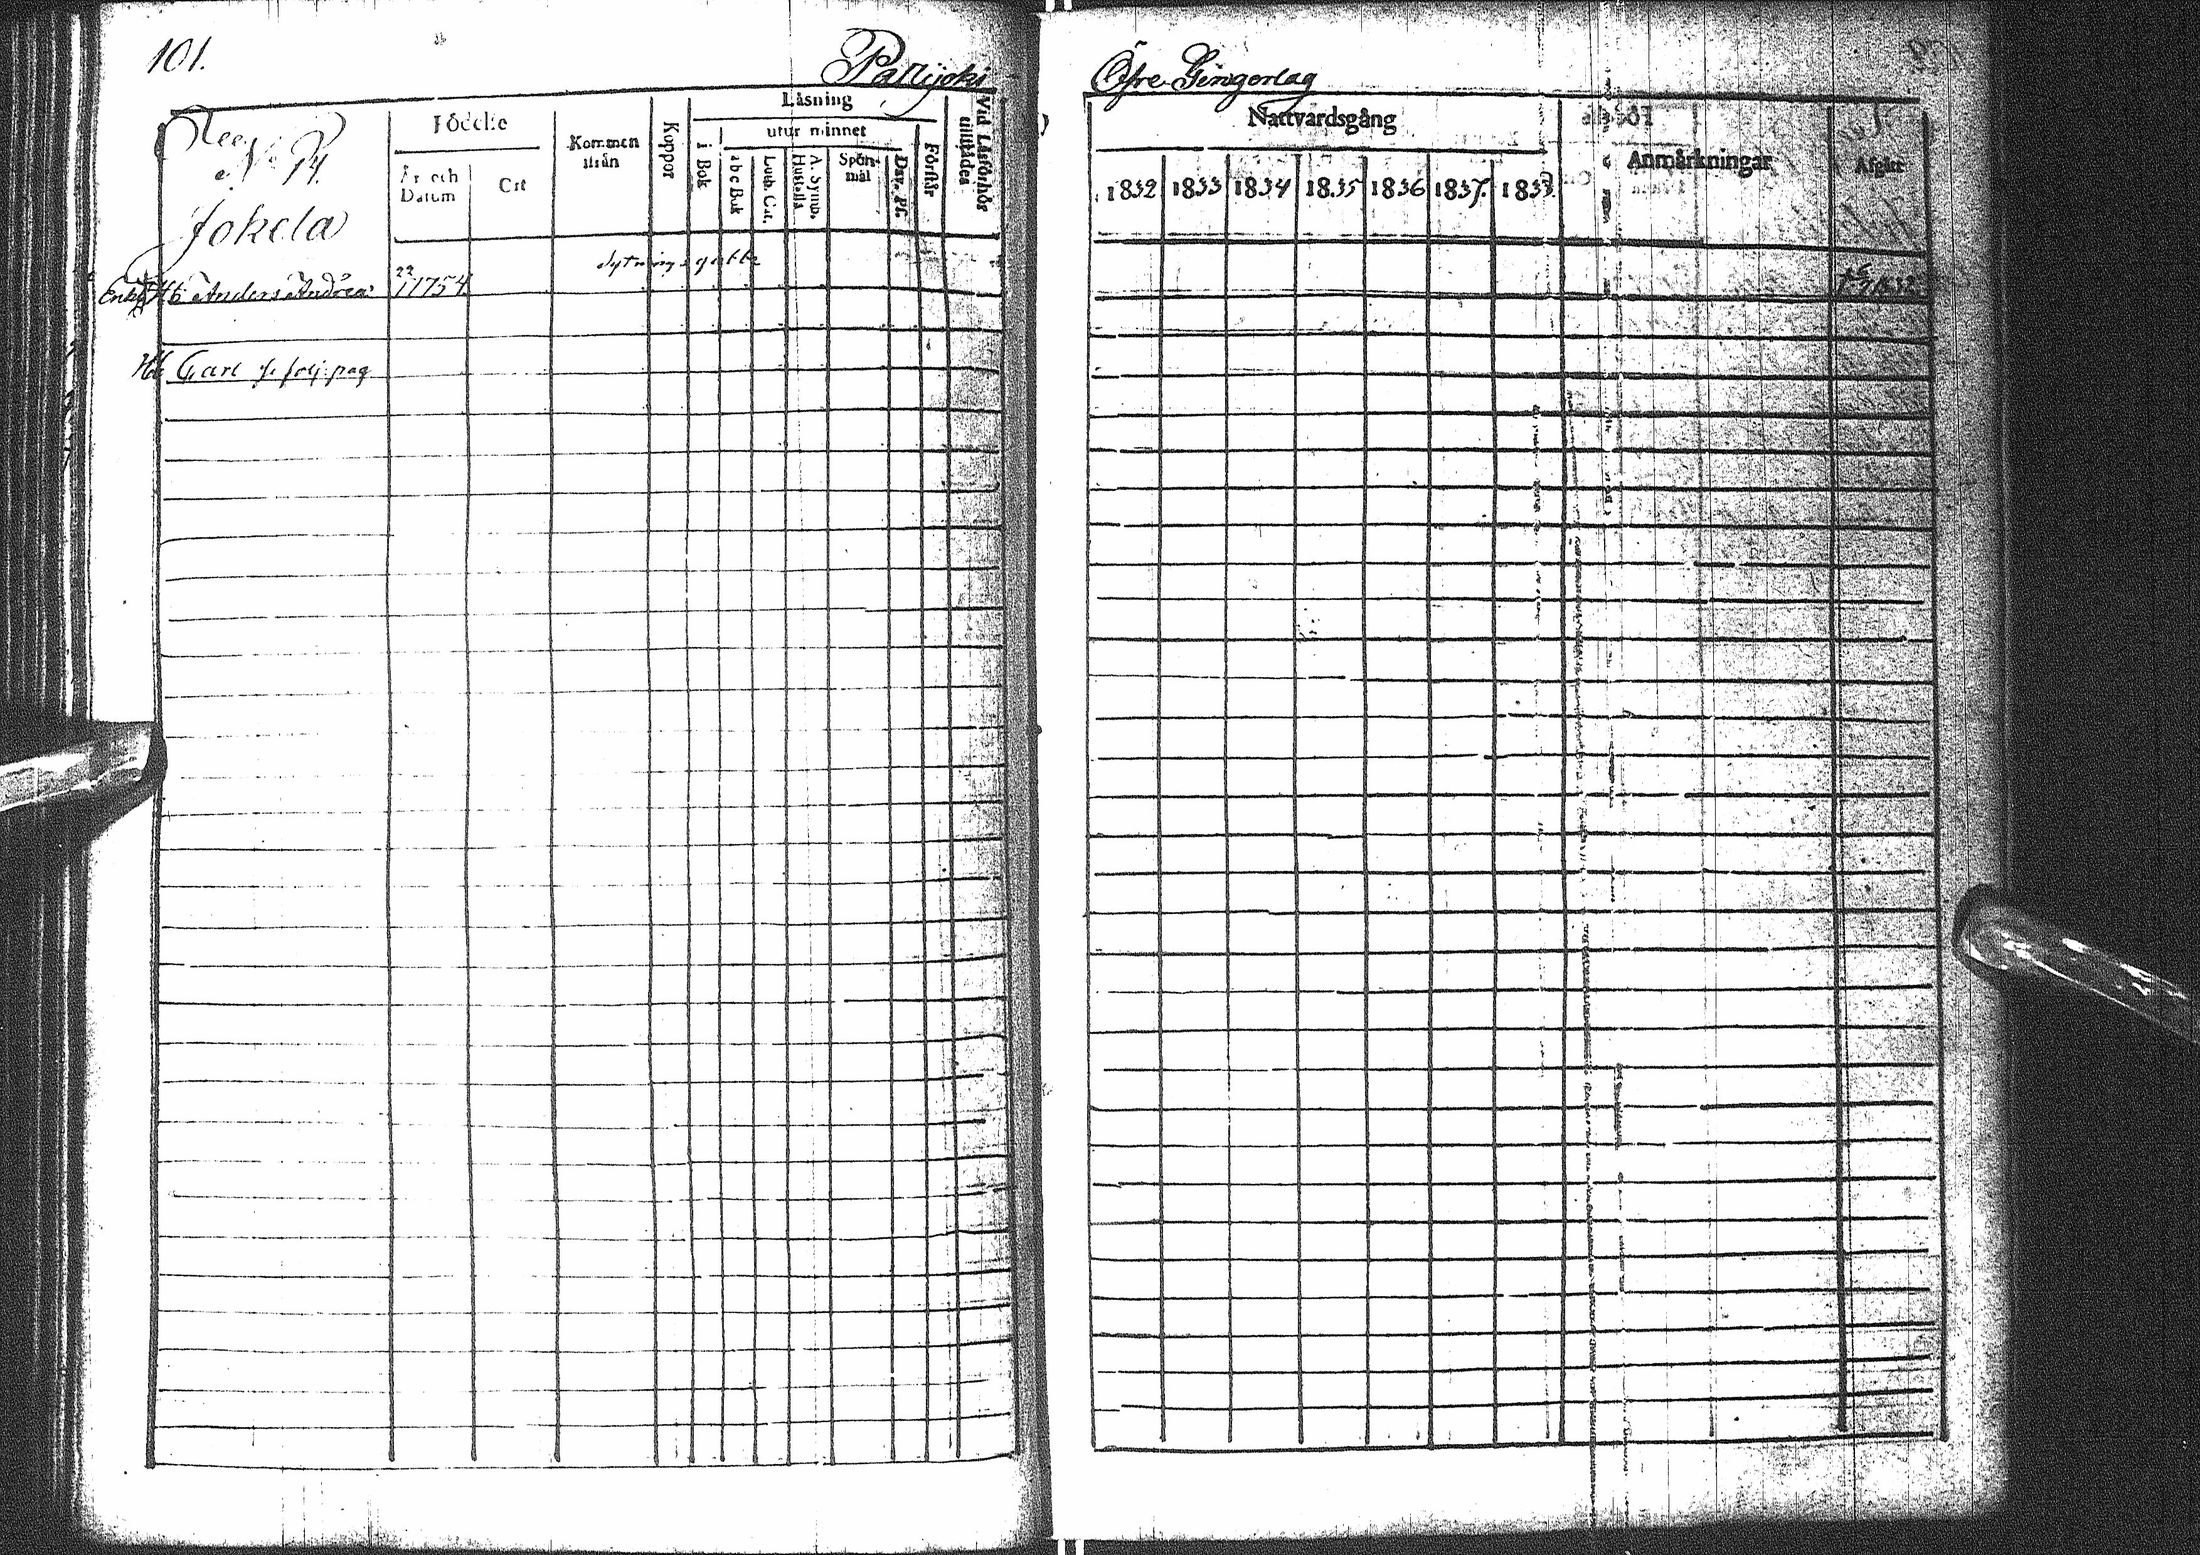 101.
Pattijoki
N: 14.
Jokela
Födelse
År och Datum
Ort
Kommen ifrån
Koppor
Läsning
i Bok
utur minnet
abc Bok
Luth. Cat.
A. Symb. Hustafla
Spörsmål
Dav. Ps.
Förstår
Vid Läsförhör tillstädes
Sytnings gubbe
Enkl. Hb. Anders Andrea: 22/1 1754.
† 5/7 1832
Hb. Carl
pag
Öfre Gingerlag
Nattvardsgång
1832 1833 1834 1835 1836 1837. 1838.
Anmärkningar
Afgått